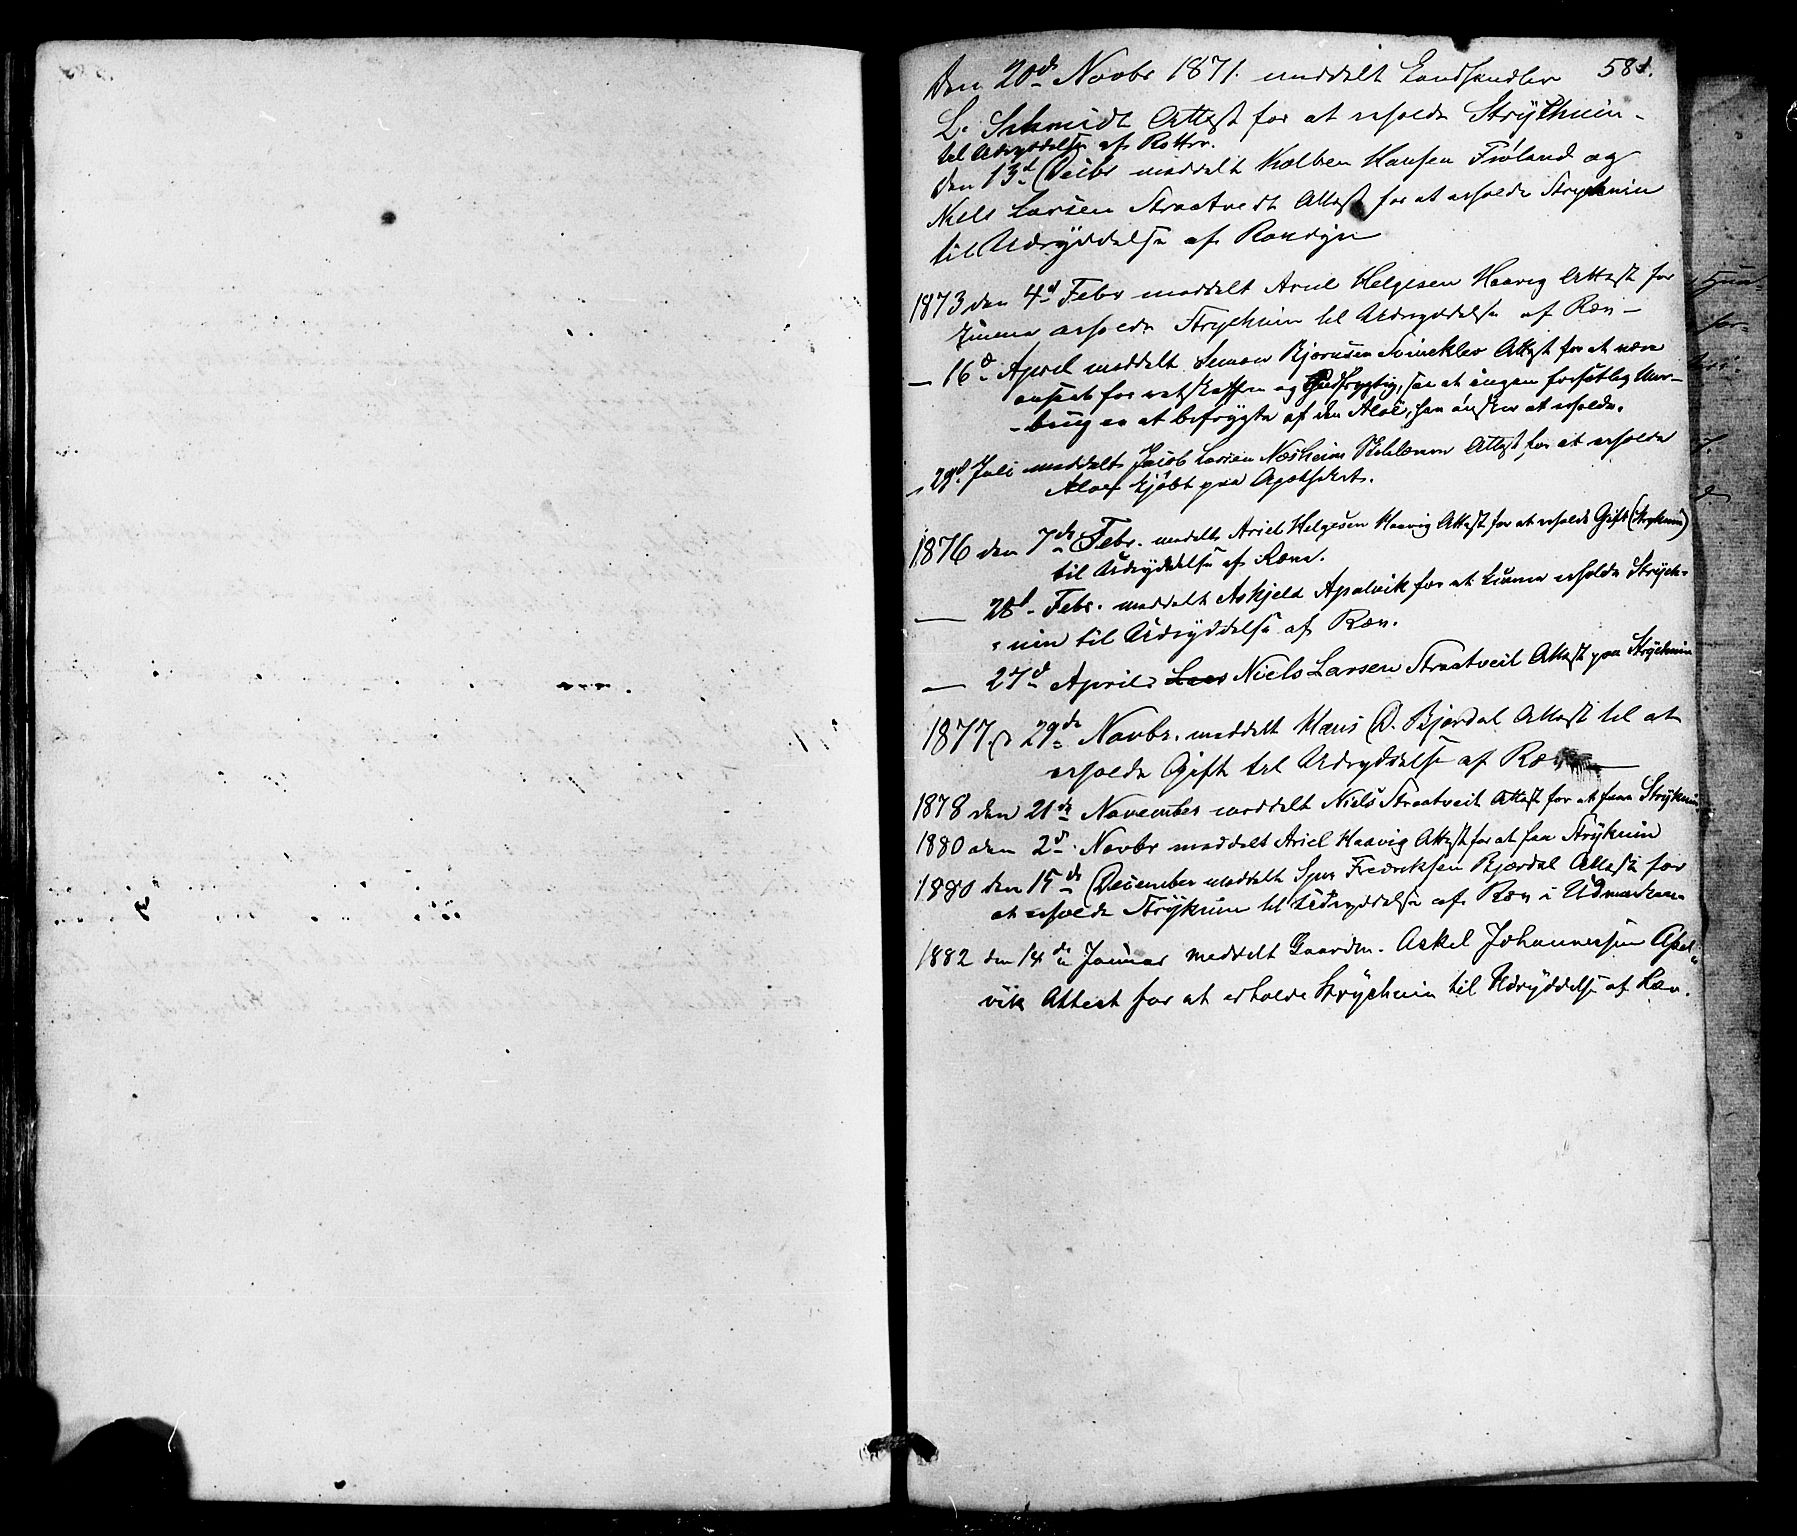 Den 20de Novbr 1871. meddelt Landhandler 581.
L. Schmidt Attest for at erholde Strÿchnin-
til Udryddelse af Rotter.
den 13d Decbr meddelt Kolben Hansen Frøland og
Niels Larsen Straatvedt Attest for at erholde Strychnin
til Udrÿddelse af Rovdyr
1873 den 4d Febr meddelt Ariel Helgesen Haavig Attest for
kunne erholde Strychnin til Udryddelse af Ræv-
— 16d April meddelt Simon Bjørnsen Attest for at være
anseet for retskaffen og Gudfrygtig, saa at ingen forsætlig Mis-
-brug er at befrygte af den Aloë, han ønsker at erholde.
— 29d Juli meddelt Jacob Larsen Næsheim Attest for at erholde
Aloe kjøbt paa Apotheket.
1876 den 7de Febr. meddelt Ariel Helgesen Haavig Attest for at erholde Gift (Stryknin)
til Udryddelse af Ræve.
— 28d Febr. meddelt Askjeld Apalvik for at kunne erholde Strÿch-
-nin til Udrÿddelse af Ræv.
— 27d April Lars Niels Larsen Straatveit Attest paa Strÿchnin
1877 d 29de Novbr. meddelt Hans D. Bjordal Attest til at
erholde Gift til Udryddelse af Ræv
1878 den 21de November meddelt Niels Straatveit Attest for at faaa Strÿknin
1880 den 2d Novbr meddelt Ariel Haavig Attest for at faa Strÿknin
1880 den 15de December meddelt Fredriksen Bjørdal Attest for
at erholde Strÿknin til Udryddelse af Ræv i Udmarken-
1882 den 14de Januar meddelt Gaardm. Askel Johannessen Apal-
vik Attest for at erholde Strÿchnin til Udrÿddelse af Ræv.